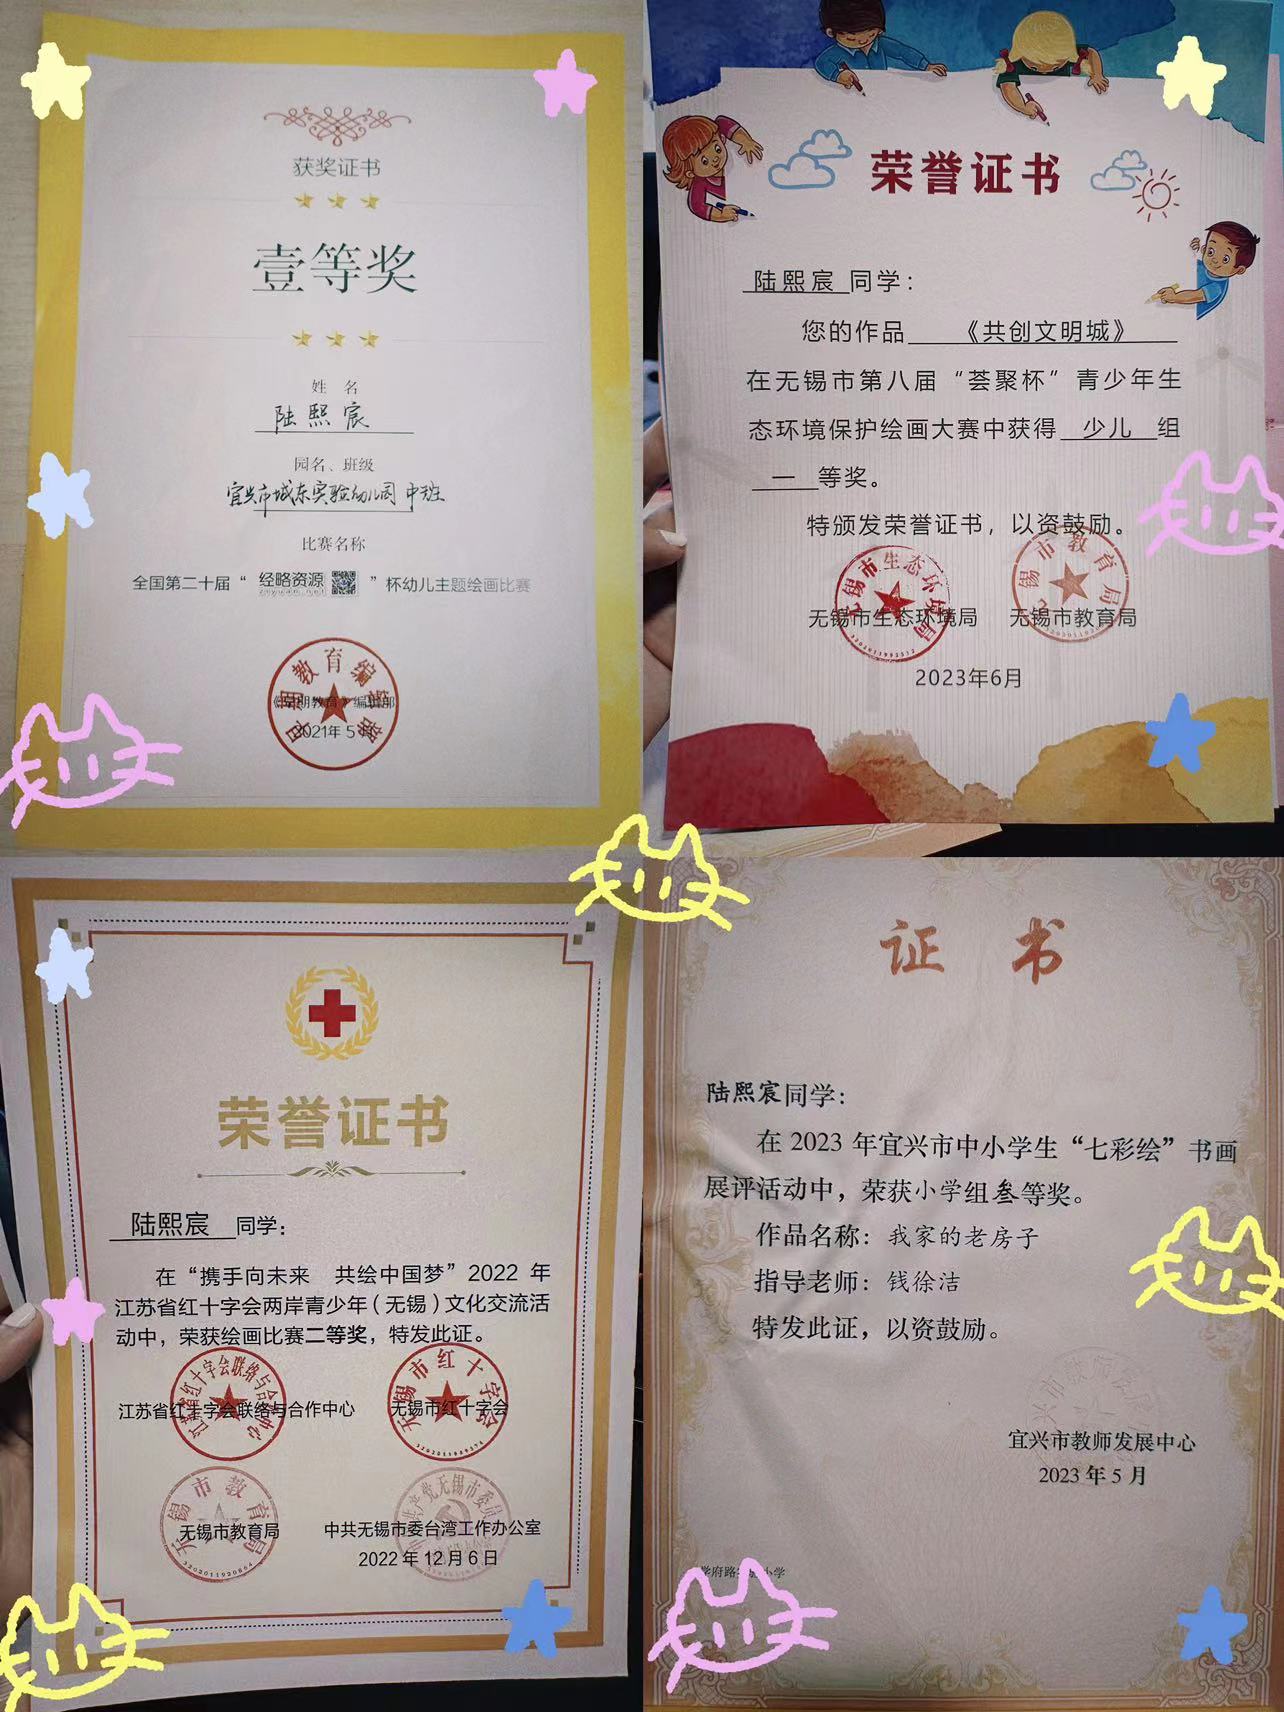 获奖证书
壹等奖
姓 名
陆熙宸
园名、班级
宜兴市城东实验幼儿园 中班
比赛名称
全国第二十届“经略资源 ziyuan.net ”杯幼儿主题绘画比赛
早期教育编辑部
《早期教育》编辑部
2021年5月
荣誉证书
陆熙宸 同学：
您的作品 《共创文明城》
在无锡市第八届“荟聚杯”青少年生
态环境保护绘画大赛中获得 少儿 组
一 等奖。
特颁发荣誉证书，以资鼓励。
无锡市生态环境局
无锡市教育局
无锡市生态环境局 无锡市教育局
2023年6月
荣誉证书
陆熙宸 同学：
在“携手向未来 共绘中国梦”2022年
江苏省红十字会两岸青少年（无锡）文化交流活
动中，荣获绘画比赛二等奖，特发此证。
江苏省红十字会联络与合作中心
无锡市红十字会
江苏省红十字会联络与合作中心 无锡市红十字会
无锡市教育局
无锡市教育局 中共无锡市委台湾工作办公室
2022年12月6日
证 书
陆熙宸同学：
在 2023 年宜兴市中小学生“七彩绘”书画
展评活动中，荣获小学组叁等奖。
作品名称：我家的老房子
指导老师：钱徐洁
特发此证，以资鼓励。
宜兴市教师发展中心
2023 年 5 月